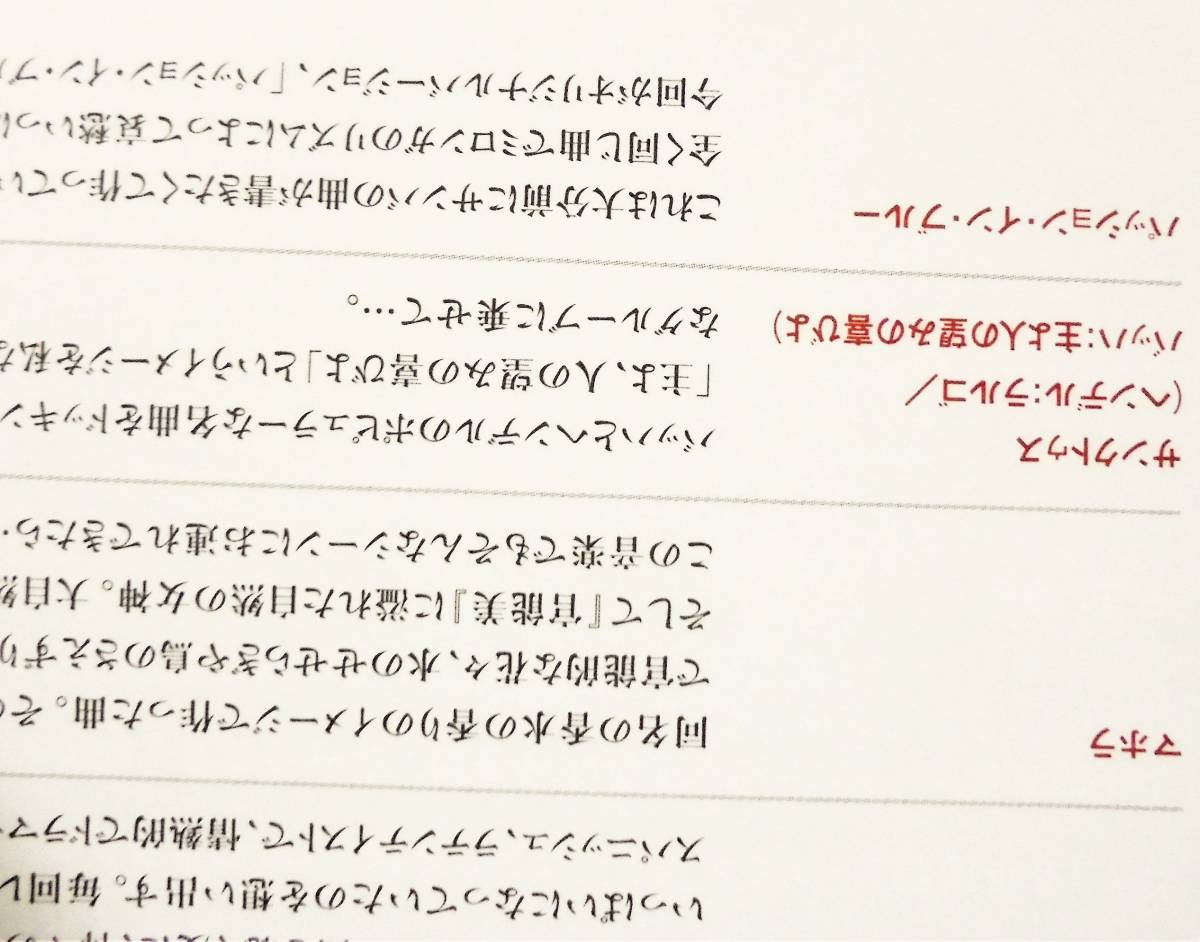 いっぱいになっていたのを想い出す。毎回レ
スパニッシュ、ラテンテイストで、情熱的でドラマ
マホラ
同名の香水の香りのイメージで作った曲。その
で官能的な花々、水のせせらぎや鳥のさえずり
そして『官能美』に溢れた自然の女神。大自然
この音楽でもそんなシーンにお連れできたら・
サンクトゥス
(ヘンデル:ラルゴ/
バッハ:主よ人の望みの喜びよ)
バッハとヘンデルのポピュラーな名曲をドッキン
「主よ、人の望みの喜びよ」というイメージを私な
なグルーブに乗せて…。
パッション・イン・ブルー
これは大分前にサンバの曲が書きたくて作ってい
全く同じ曲でミロンガのリズムによって哀愁いっぱ
今回がオリジナルバージョン、「パッション・イン・ブル